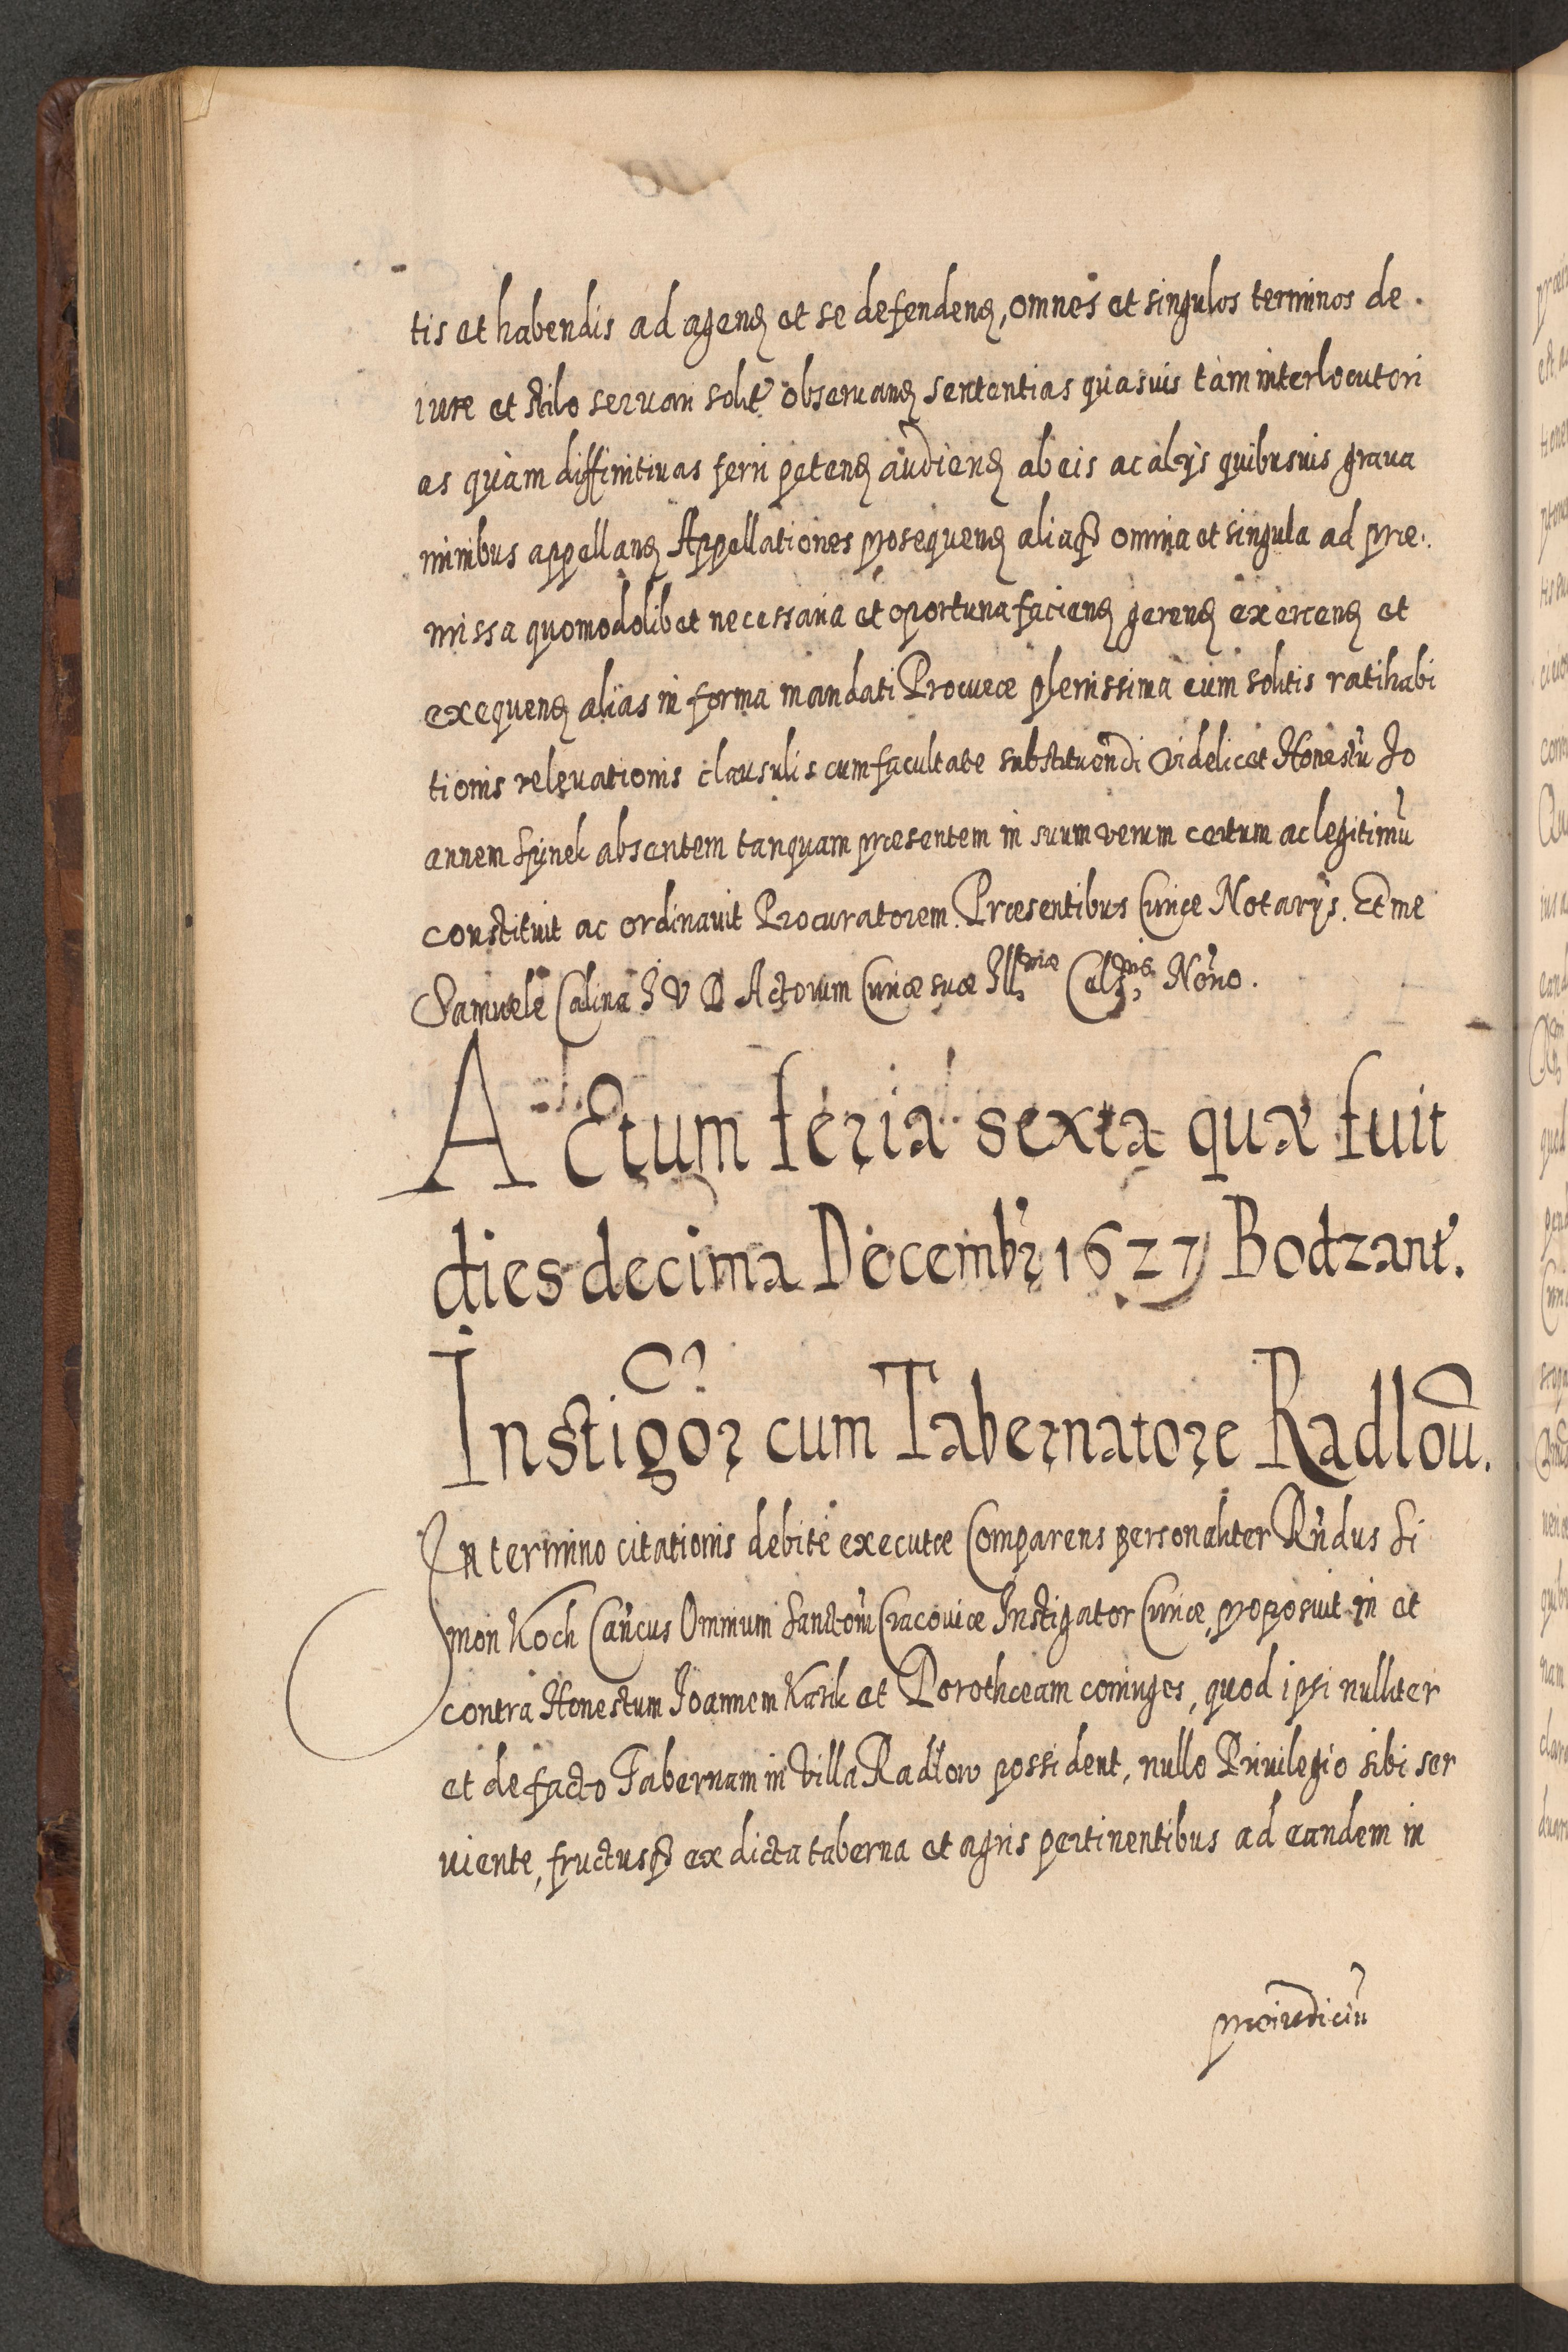 tis et habendis ad agend et se defendend, omnes et singulos terminos de
iure et stilo seruari solit obseruand sententias quasuis tàm interlocutori
as quàm diffinitiuas ferri petend audiend ab eis ac alijs quibusuis graua
minibus appelland Appellationes prosequend aliaqȝ omnia et singula ad præ
missa quomodolibet necessaria et oportuna faciend gerend exercend et
exequend alias in forma mandati Procuræ plenissima cum solitis ratihabi
tionis releuationis clausulis cum facultate substituendi videlicet Honestũ Jo
annem Spinek absentem tanquam præsentem in suum verum certum ac legitimũ
constituit ac ordinauit Procuratorem. Præsentibus Curiæ Notarijs. Et me
Samuele Calina I V D Actorum Curiæ suæ Ill:mæ Cels:nis Nõrio.
Actum feria sexta quæ fuit
dies decima Decembr 1627 Bodzant.
Instigor cum Tabernatore Radloũ.
In termino citationis debitè executæ Comparens personaliter Rñdus Si
mon Koch Cañcus Omnium Sanctorũ Cracouiæ Instigator Curiæ, proposuit in et
contra Honestum Joannem Karlik et Dorothæam coniuges, quod ipsi nulliter
et de facto Tabernam in Villa Radłow possident, nullo Priuilegio sibi ser
uiente, fructusqȝ ex dicta taberna et agris pertinentibus ad eandem in
præiudiciũ